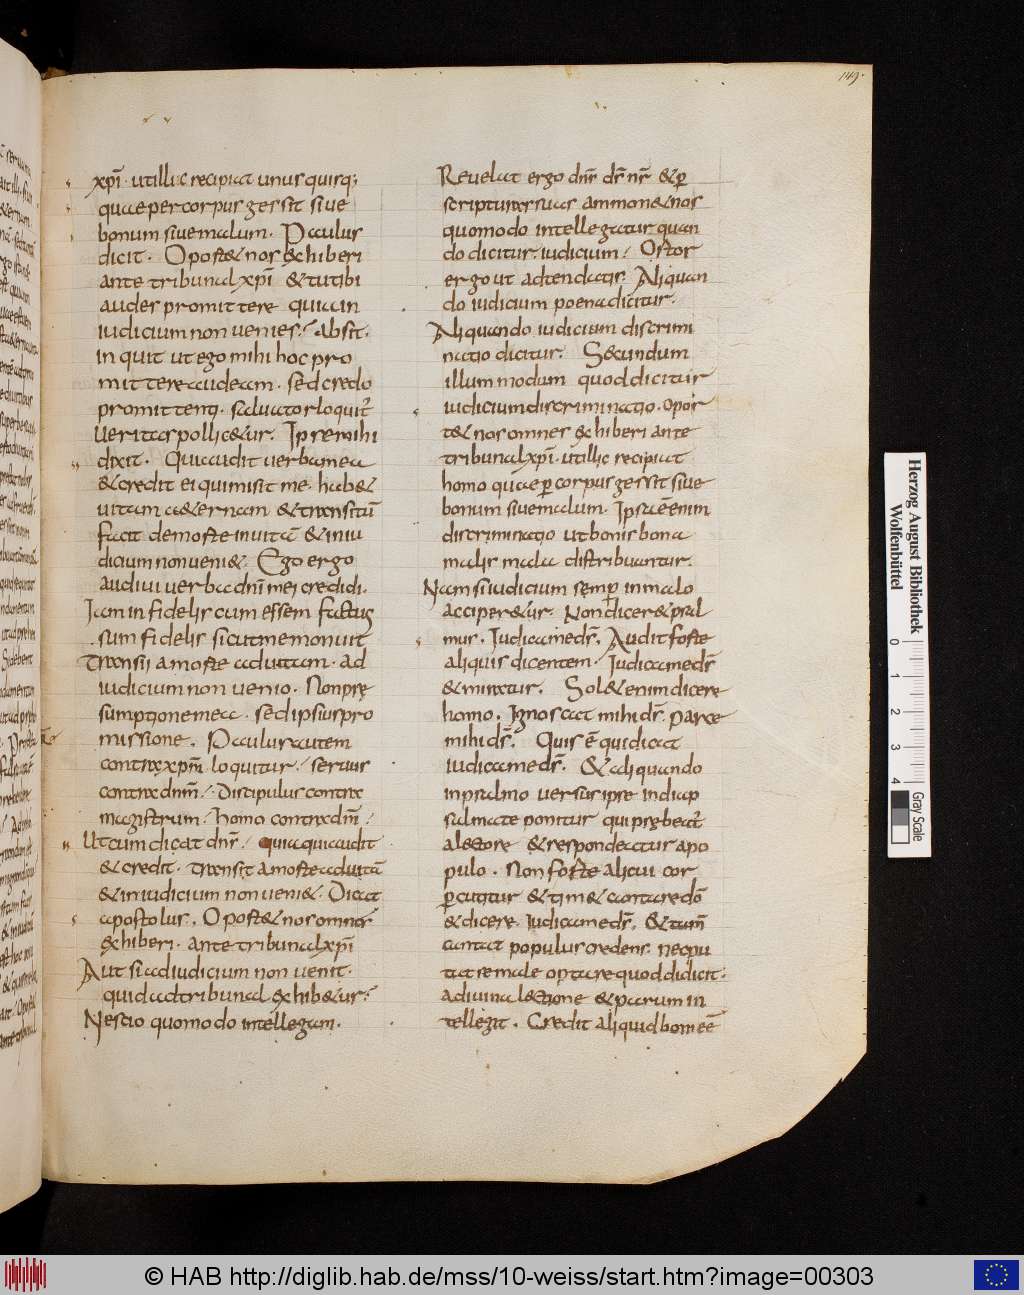 149.
xp̄i· ut illic recipiat unusquisq;
quae per corpus gessit siue
bonum siue malum. Paulus
dicit. Oportet nos exhiberi
ante tribunal xp̄i et tu tibi
audes promittere quia in
iudicium non uenies? absit.
inquit ut ego mihi hoc pro
mittere audeam. sed credo
promittenti. saluator loquit̄
Ueritas pollicetur. Ipse mihi
dixit. Qui audit uerba mea
et credit ei qui misit me. habet
uitam aeternam et transitū
facit de morte in uitā et in iu
dicium non uenit. Ego ergo
audiui uerba dn̄i mei credidi.
Iam infidelis cum essem factus
sum fidelis sicut me monuit
Transii a morte ad uitam. ad
iudicium non uenio. Non pre
sumptione mea. sed ipsius pro
missione. Paulus autem
contra xp̄m loquitur? seruus
contra dnm̄? Discipulus contra
magistrum? homo contra dm̄?
Ut cum dicat dn̄s? quia qui audit
et credit. transit a morte ad uitā
et in iudicium non uenit. Dicat
apostolus. Oportet nos omnes
exhiberi. ante tribunal xp̄i
Aut si ad iudicium non uenit.
quid ad tribunal exhibetur?
Nescio quomodo intellegam.
Reuelat ergo dn̄s ds̄ nr̄ et ꝑ
scripturas suas ammonet nos
quomodo intellegatur quan
do dicitur. iudicium? Ostor
ergo ut adtendatis. Aliquan
do iudicium poena dicitur.
Aliquando iudicium discrimi
natio dicitur. Secundum
illum modum quod dicitur
iudicium discriminatio. opor
tet nos omnes exhiberi ante
tribunal xp̄i. ut illic recipiat
homo quae ꝑ corpus gessit siue
bonum siue malum. Ipsa ē enim
discriminatio ut bonis bona
malis mala distribuantur.
Nam si iudicium semꝑ in malo
acciperetur. Non diceret psal
mus. Iudica me ds̄. Audit forte
aliquis dicentem. Iudica me ds̄
et miratur. Solet enim dicere
homo. Ignoscat mihi ds̄. Parce
mihi ds̄. Quis ē qui dicat
iudica me ds̄. Et aliquando
in psalmo uersus ipse in diap
salmate ponitur qui prebeat̄
a lectore et respondeatur a po
pulo. Non forte alicui cor
ꝑcutitur et timet cantare dō
et dicere. Iudica me ds̄. Et tam̄
cantat populus credens. nec pu
tat se male optare quod didicit.
a diuina lectione et parum in
tellegit. Credit aliquid boni eē
Herzog August Bibliothek
Wolfenbüttel
0 1 2 3 4
Gray Scale
© HAB http://diglib.hab.de/mss/10-weiss/start.htm?image=00303